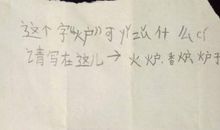 这个字“炉”可以组什么？
请写在这儿→火炉.香炉.炉子